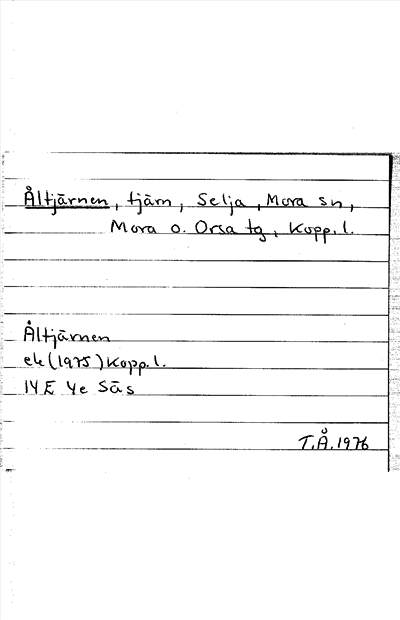 Åltjärnen, tjärn, Selja, Mora sn,
Mora o. Orsa tg, Kopp. l.
Åltjärnen
ek (1975) Kopp. l.
14 E 4e Säs
T.Å. 1976